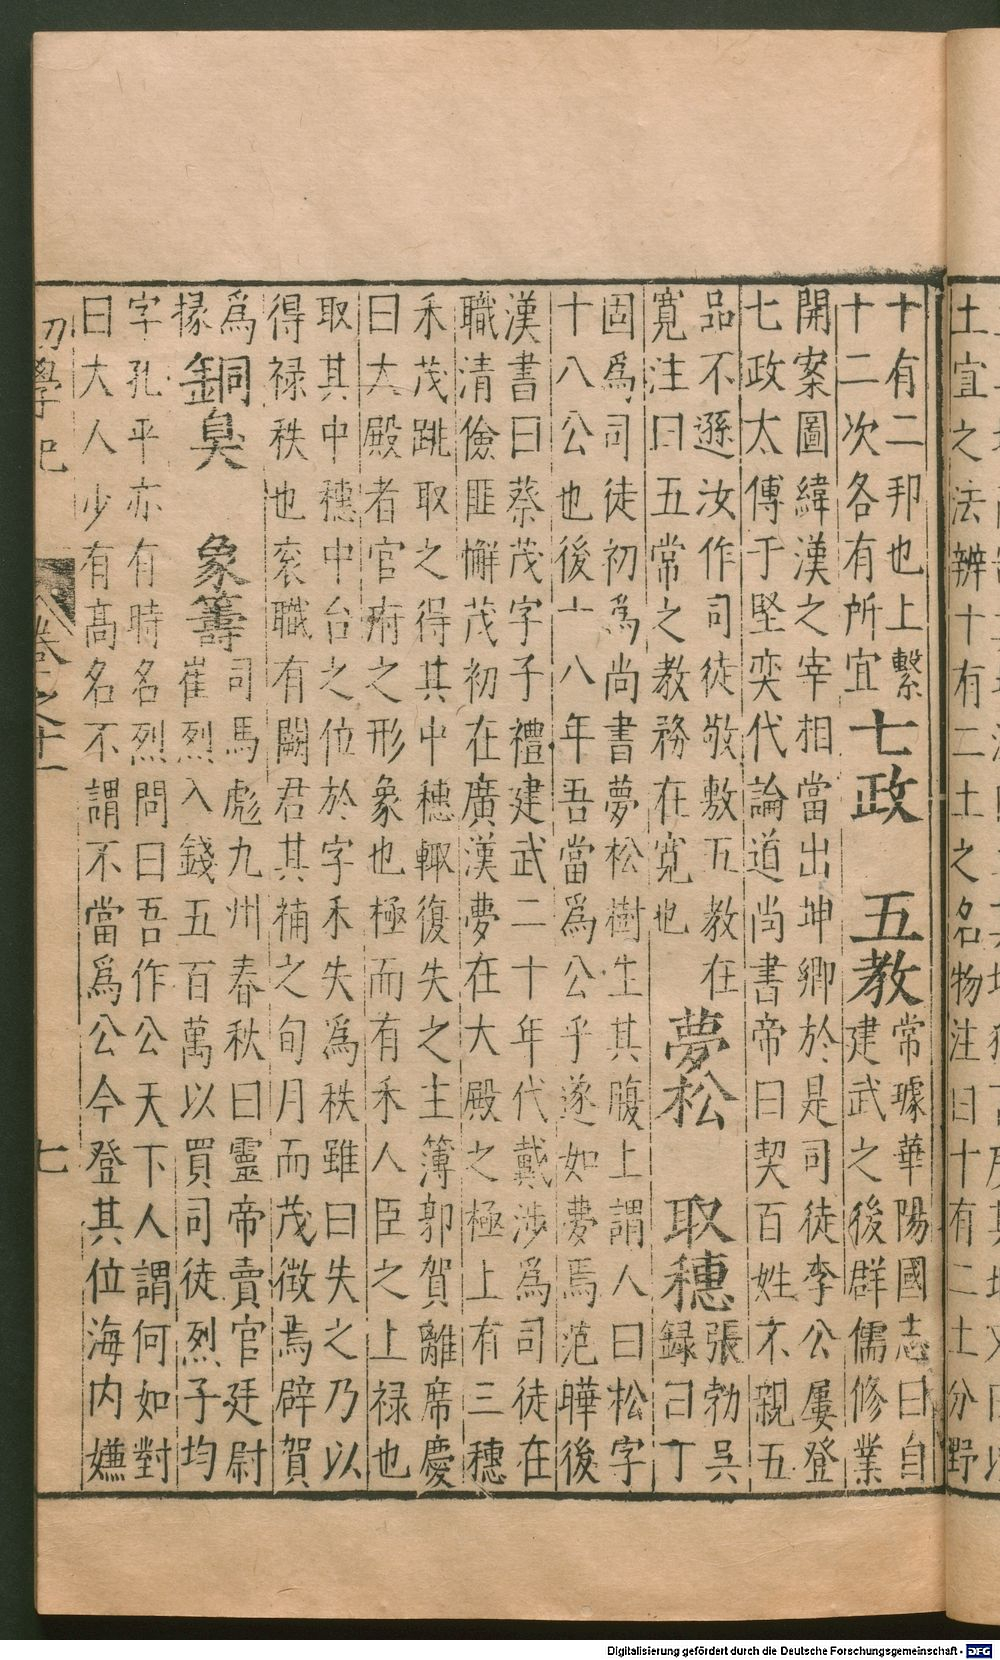 土宜之法辨十有二土之名物注曰十有二土分野
十有二邦也上繫
十二次各有所宜
七政 五教
常璩華陽國志曰自
建武之後群儒修業
開案圖緯漢之宰相當出坤卿於是司徒李公屢登
七政太傅于堅奕代論道尚書帝曰契百姓不親五
品不遜汝作司徒敬敷五教在
寬注曰五常之教務在寬也
夢松 取穗
張勃吳
録曰丁
固爲司徒初爲尚書夢松樹生其腹上謂人曰松字
十八公也後十八年吾當爲公乎遂如夢焉范曄後
漢書曰蔡茂字子禮建武二十年代戴涉爲司徒在
職清儉匪懈茂初在廣漢夢在大殿之極上有三穗
禾茂跳取之得其中穗輙復失之主簿郭賀離席慶
曰大殿者官府之形象也極而有禾人臣之上禄也
取其中穗中台之位於字禾失爲秩雖曰失之乃以
得禄秩也衮職有闕君其補之旬月而茂徵焉辟賀
爲
掾
銅臭 象籌
司馬彪九州春秋曰靈帝賣官廷尉
崔烈入錢五百萬以買司徒烈子均
字孔平亦有時名烈問曰吾作公天下人謂何如對
曰大人少有髙名不謂不當爲公今登其位海内嫌
初學記 卷之十一 七
Digitalisierung gefördert durch die Deutsche Forschungsgemeinschaft - DFG